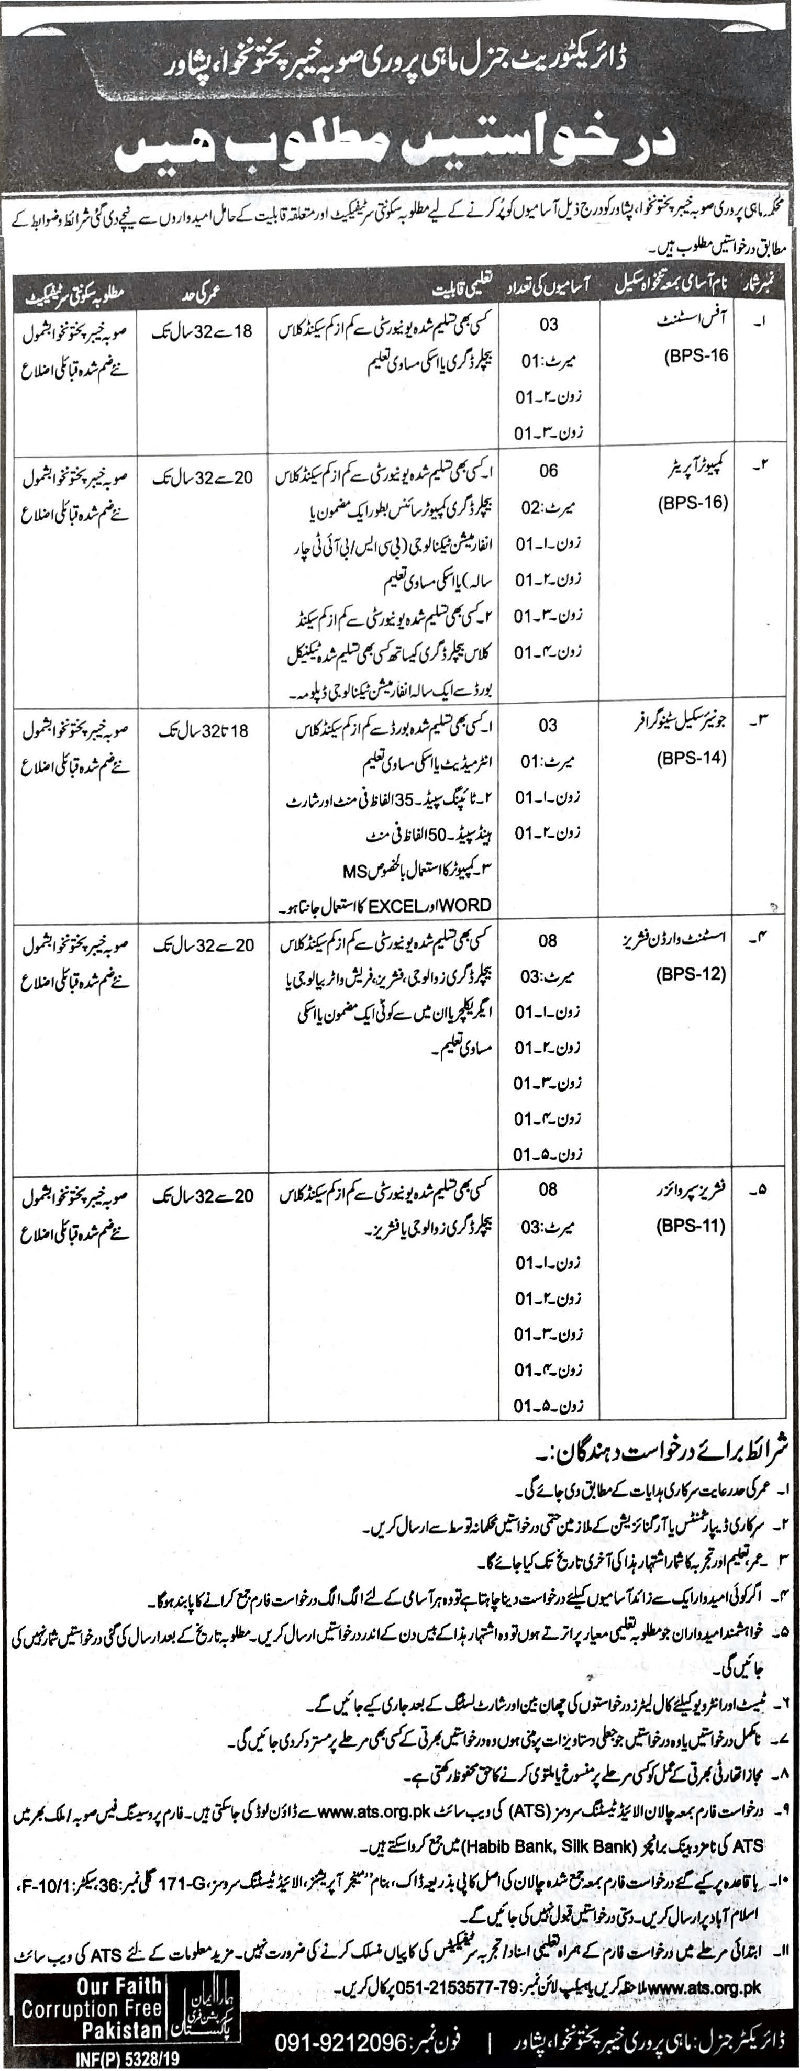 ڈائریکٹوریٹ جنرل ماہی پروری صوبہ خیبر پختونخوا، پشاور
درخواستیں مطلوب ہیں
محکمہ ماہی پروری صوبہ خیبر پختونخوا، پشاور کو درج ذیل آسامیوں کو پُر کرنے کے لیے مطلوبہ سکونتی سرٹیفکیٹ اور متعلقہ قابلیت کے حامل امیدواروں سے نیچے دی گئی شرائط و ضوابط کے
مطابق درخواستیں مطلوب ہیں۔
نمبر شمار نام آسامی بمعہ تنخواہ سکیل آسامیوں کی تعداد تعلیمی قابلیت عمر کی حد مطلوبہ سکونتی سرٹیفکیٹ
۱۔ آفس اسسٹنٹ 03 کسی بھی تسلیم شدہ یونیورسٹی سے کم از کم سیکنڈ کلاس 18 سے 32 سال تک صوبہ خیبر پختونخوا بشمول
(BPS-16 میرٹ:01 بیچلر ڈگری یا اسکی مساوی تعلیم نئے ضم شدہ قبائلی اضلاع
زون۔۲۔01
زون۔۳۔01
۲۔ کمپیوٹر آپریٹر 06 ۱۔ کسی بھی تسلیم شدہ یونیورسٹی سے کم از کم سیکنڈ کلاس 20 سے 32 سال تک صوبہ خیبر پختونخوا بشمول
(BPS-16) میرٹ:02 بیچلر ڈگری کمپیوٹر سائنس بطور ایک مضمون یا نئے ضم شدہ قبائلی اضلاع
زون۔۱۔01 انفارمیشن ٹیکنالوجی (بی سی ایس/بی آئی ٹی چار
زون۔۲۔01 سالہ) یا اسکی مساوی تعلیم
زون۔۳۔01 ۲۔ کسی بھی تسلیم شدہ یونیورسٹی سے کم از کم سیکنڈ
زون۔۴۔01 کلاس بیچلر ڈگری کیساتھ کسی بھی تسلیم شدہ ٹیکنیکل
بورڈ سے ایک سالہ انفارمیشن ٹیکنالوجی ڈپلومہ۔
۳۔ جونیئر سکیل سٹینوگرافر 03 ۱۔ کسی بھی تسلیم شدہ بورڈ سے کم از کم سیکنڈ کلاس 18 تا 32 سال تک صوبہ خیبر پختونخوا بشمول
(BPS-14) میرٹ:01 انٹرمیڈیٹ یا اسکی مساوی تعلیم نئے ضم شدہ قبائلی اضلاع
زون۔۱۔01 ۲۔ ٹائپنگ سپیڈ۔35 الفاظ فی منٹ اور شارٹ
زون۔۲۔01 ہینڈ سپیڈ۔50 الفاظ فی منٹ
۳۔ کمپیوٹر کا استعمال بالخصوص MS
WORD اور EXCEL کا استعمال جانتا ہو۔
۴۔ اسسٹنٹ وارڈن فشریز 08 کسی بھی تسلیم شدہ یونیورسٹی سے کم از کم سیکنڈ کلاس 20 سے 32 سال تک صوبہ خیبر پختونخوا بشمول
(BPS-12) میرٹ:03 بیچلر ڈگری زوالوجی، فشریز، فریش واٹر بیالوجی یا نئے ضم شدہ قبائلی اضلاع
زون۔۱۔01 ایگریکلچر یا ان میں سے کوئی ایک مضمون یا اسکی
زون۔۲۔01 مساوی تعلیم۔
زون۔۳۔01
زون۔۴۔01
زون۔۵۔01
۵۔ فشریز سپروائزر 08 کسی بھی تسلیم شدہ یونیورسٹی سے کم از کم سیکنڈ کلاس 20 سے 32 سال تک صوبہ خیبر پختونخوا بشمول
(BPS-11) میرٹ:03 بیچلر ڈگری زوالوجی یا فشریز۔ نئے ضم شدہ قبائلی اضلاع
زون۔۱۔01
زون۔۲۔01
زون۔۳۔01
زون۔۴۔01
زون۔۵۔01
شرائط برائے درخواست دہندگان:۔
۱۔ عمر کی حد رعایت سرکاری ہدایات کے مطابق دی جائے گی۔
۲۔ سرکاری ڈیپارٹمنٹس یا آرگنائزیشن کے ملازمین حتمی درخواستیں محکمانہ توسط سے ارسال کریں۔
۳۔ عمر، تعلیم اور تجربہ کا شمار اشتہار ہذا کی آخری تاریخ تک کیا جائے گا۔
۴۔ اگر کوئی امیدوار ایک سے زائد آسامیوں کیلئے درخواست دینا چاہتا ہے تو وہ ہر آسامی کے لئے الگ الگ درخواست فارم جمع کرانے کا پابند ہوگا۔
۵۔ خواہشمند امیدواران جو مطلوبہ تعلیمی معیار پر اترتے ہوں تو وہ اشتہار ہذا کے بیس دن کے اندر درخواستیں ارسال کریں۔ مطلوبہ تاریخ کے بعد ارسال کی گئی درخواستیں شمار نہیں کی
جائیں گی۔
۶۔ ٹیسٹ اور انٹرویو کیلئے کال لیٹرز درخواستوں کی چھان بین اور شارٹ لسٹنگ کے بعد جاری کیے جائیں گے۔
۷۔ نامکمل درخواستیں یا وہ درخواستیں جو جعلی دستاویزات پر مبنی ہوں وہ درخواستیں بھرتی کے کسی بھی مرحلے پر مسترد کر دی جائیں گی۔
۸۔ مجاز اتھارٹی بھرتی کے عمل کو کسی مرحلے پر منسوخ یا ملتوی کرنے کا حق محفوظ رکھتی ہے۔
۹۔ درخواست فارم بمعہ چالان الائیڈ ٹیسٹنگ سروسز (ATS) کی ویب سائٹ www.ats.org.pk سے ڈاؤن لوڈ کی جاسکتی ہیں۔ فارم پروسیسنگ فیس صوبہ/ملک بھر میں
ATS کی نامزد بینک برانچز (Habib Bank, Silk Bank) میں جمع کرواسکتے ہیں۔
۱۰۔ باقاعدہ پر کیے گئے درخواست فارم بمعہ جمع شدہ چالان کی اصل کاپی بذریعہ ڈاک، بنام "مینجر آپریشنز، الائیڈ ٹیسٹنگ سروسز، 171-G گلی نمبر:36، سیکٹر: F-10/1،
اسلام آباد پر ارسال کریں۔ دستی درخواستیں قبول نہیں کی جائیں گے۔
۱۱۔ ابتدائی مرحلے میں درخواست فارم کے ہمراہ تعلیمی اسناد/تجربہ سرٹیفکیٹس کی کاپیاں منسلک کرنے کی ضرورت نہیں۔ مزید معلومات کے لئے ATS کی ویب سائٹ
www.ats.org.pk ملاحظہ کریں یا ہیلپ لائن نمبر: 051-2153577-79 پر کال کریں۔
ڈائریکٹر جنرل: ماہی پروری خیبر پختونخوا، پشاور | فون نمبر: 091-9212096
Our Faith
Corruption Free
Pakistan
ہمارا ایمان
کرپشن فری
پاکستان
INF(P) 5328/19